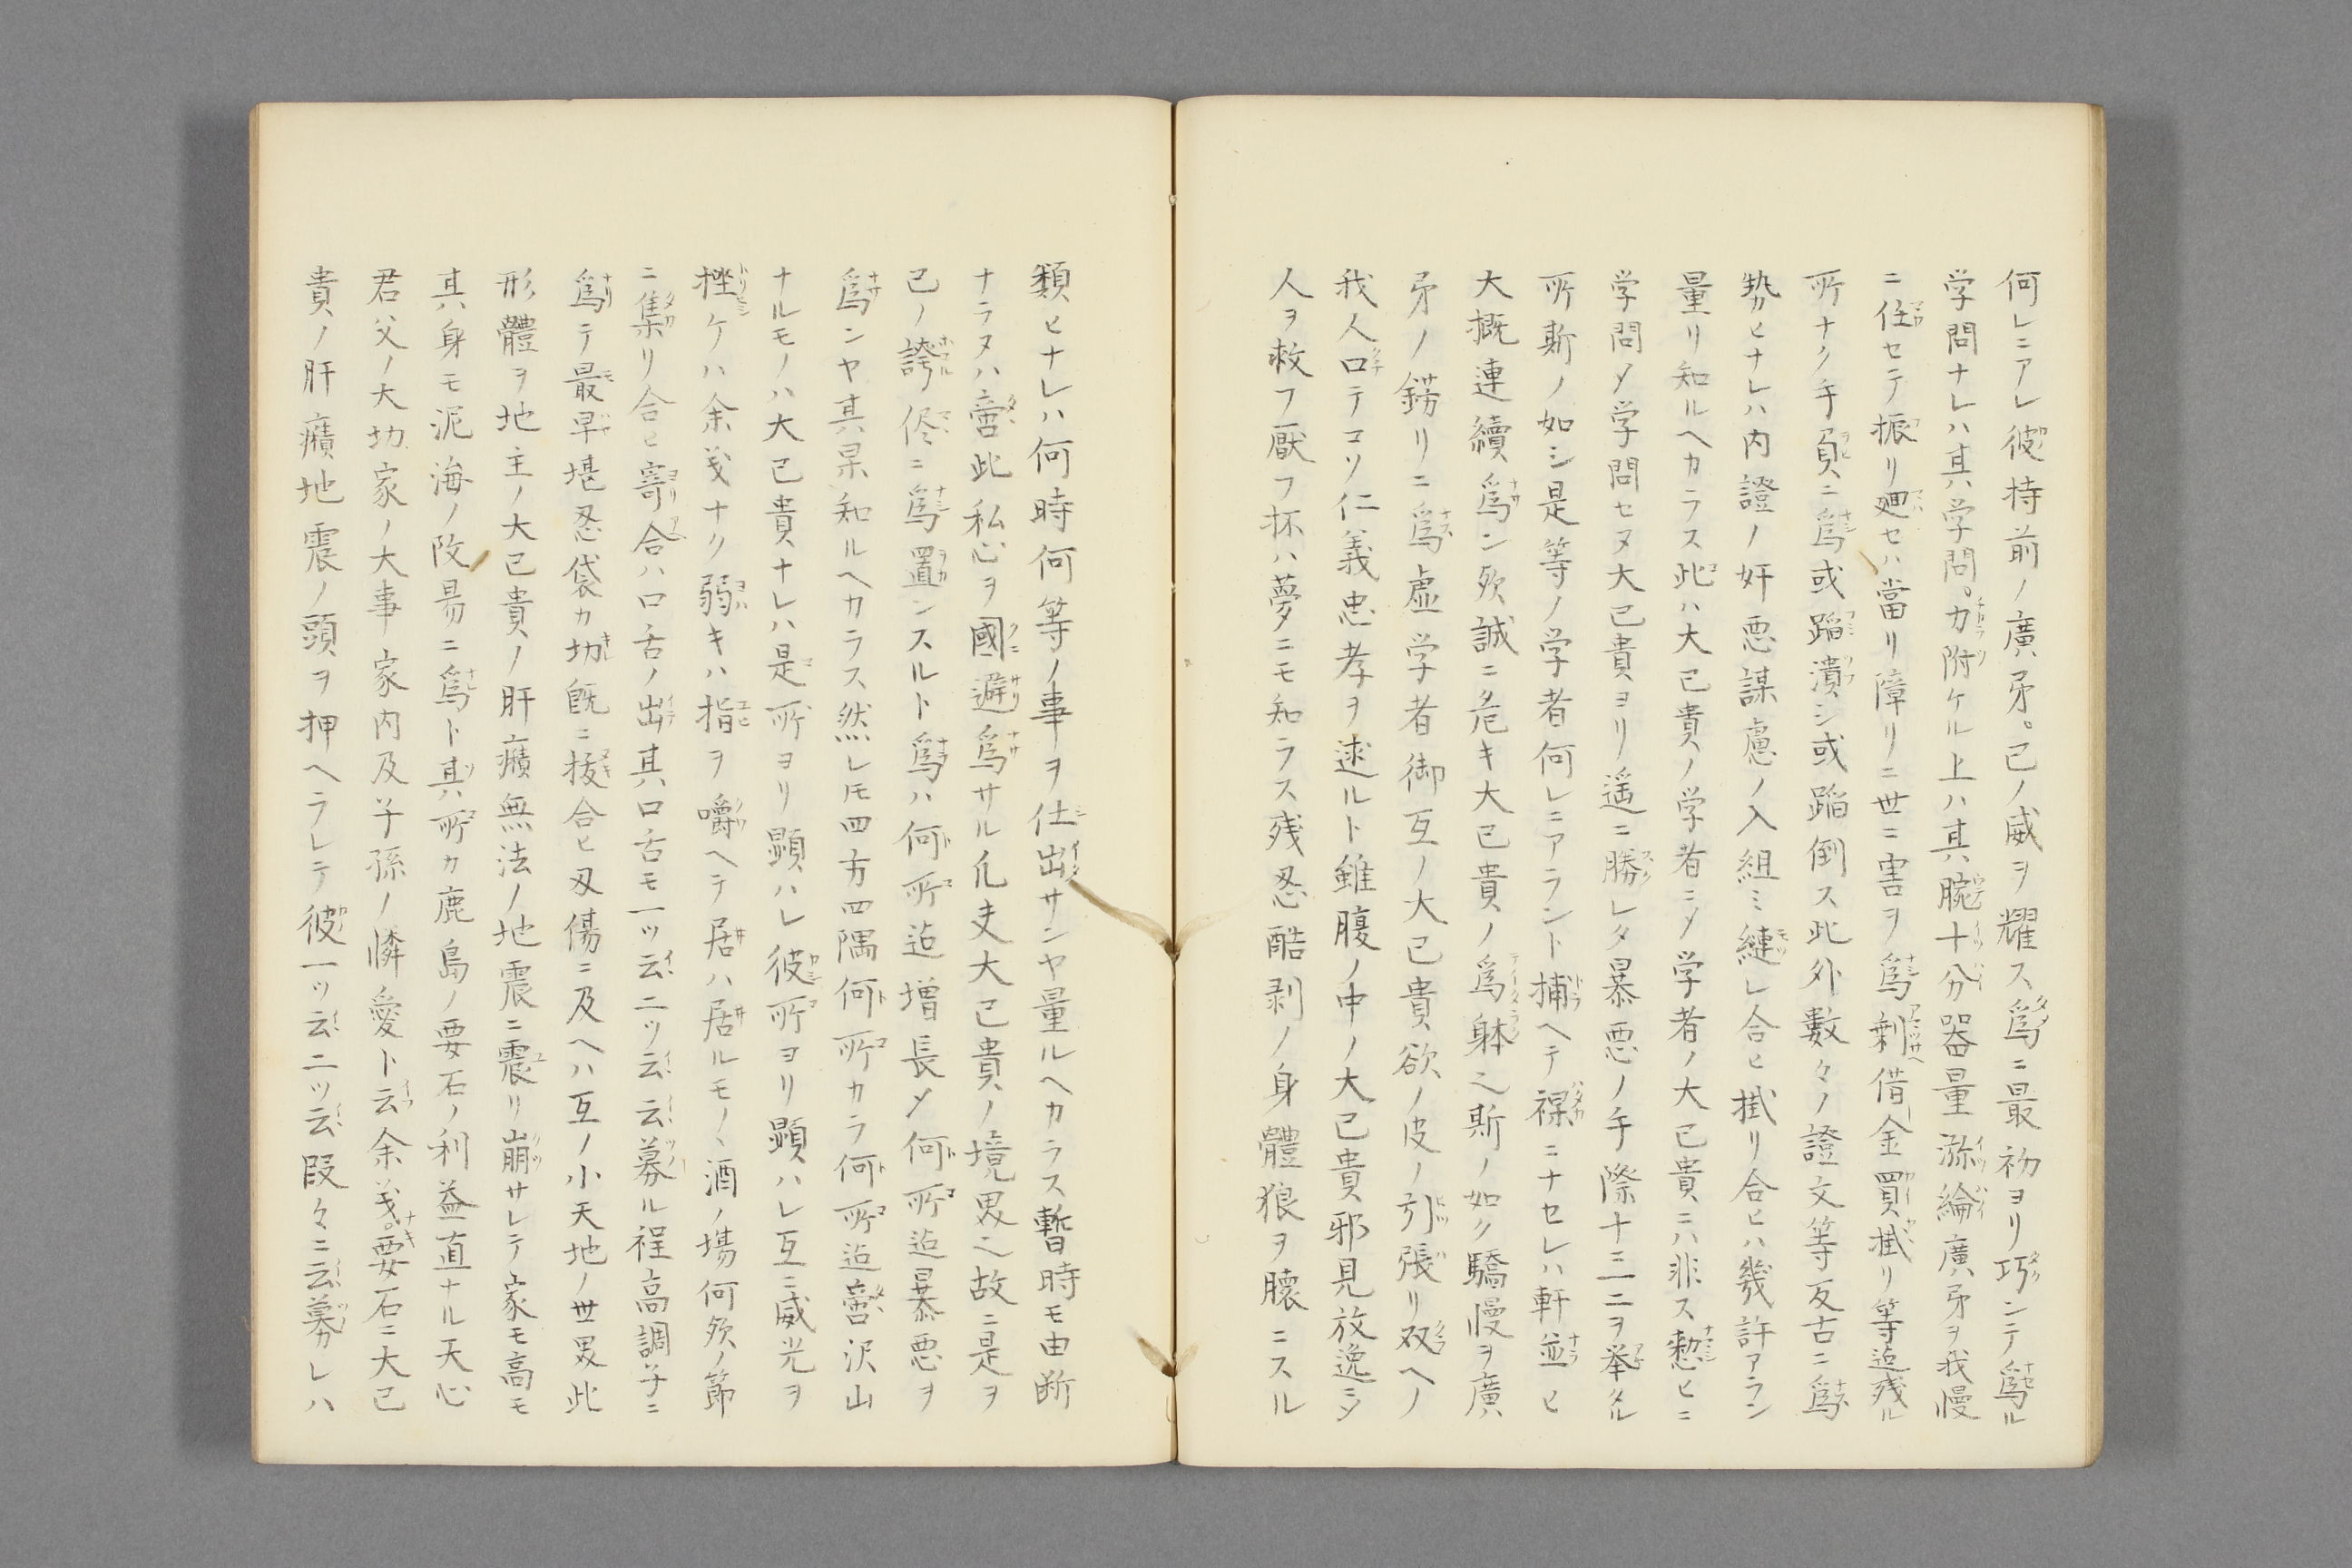 何レニアレ彼持前ノ廣矛。己ノ威ヲ耀ス爲ニ最初ヨリ巧ンテ爲ル
学問ナレハ其学問。力附ケル上ハ其腕十分器量滁綸廣矛ヲ我慢
ニ任セテ振リ廻セハ當リ障リニ世ニ害ヲ爲剰借金買掛リ等迠残ル
所ナク手負ニ爲或蹈潰シ或蹈倒ス此外數々ノ證文等反古ニ爲
勢ヒナレハ内證ノ奸悪謀慮ノ入組ミ縺レ合ヒ掛リ合ヒハ幾許アラン
量リ知ルヘカラス此ハ大已貴ノ学者ニ〆学者ノ大已貴ニハ非ス憖ヒニ
学問〆学問セヌ大已貴ヨリ遥ニ勝レタ暴悪ノ手際十三二ヲ挙タル
所斯ノ如シ是等ノ学者何レニアラント捕ヘテ裸ニナセレハ軒並ヒ
大概連續爲ン歟誠ニ危キ大已貴ノ爲躰之斯ノ如ク驕慢ヲ廣
矛ノ錺リニ爲虚学者御互ノ大已貴欲ノ皮ノ引張リ双ヘノ
我人口テコソ仁義忠孝ヲ逑ルト雖腹ノ中ノ大已貴邪見放逸ニ〆
人ヲ救フ厭フ抔ハ夢ニモ知ラス残忍酷剥ノ身體狼ヲ臕ニスル
類ヒナレハ何時何等ノ事ヲ仕出サンヤ量ルヘカラス暫時モ由断
ナラヌハ啻此私心ヲ國避爲サル凡夫大已貴ノ境界之故ニ是ヲ
己ノ誇ノ侭ニ爲置ンスルト爲ハ何所迠増長〆何所迠暴悪ヲ
爲ンヤ其杲知ルヘカラス然レ圧四方四隅何所カラ何所迠啻沢山
ナルモノハ大已貴ナレハ是所ヨリ顕ハレ彼所ヨリ顕ハレ互ニ威光ヲ
挫ケハ余義ナク弱キハ指ヲ嚼ヘテ居ハ居ルモノヽ酒ノ塲何歟ノ節
ニ集リ合ヒ寄合ハ口舌ノ出其口舌モ一ツ云二ツ云云募ル程高調子ニ
爲テ最早堪忍袋カ切既ニ抜合ヒ刄傷ニ及ヘハ互ノ小天地ノ世界此
形體ヲ地主ノ大已貴ノ肝癪無法ノ地震ニ震リ崩サレテ家モ高モ
其身モ泥海ノ阦昜ニ爲ト其所カ鹿島ノ要石ノ利益直ナル天心
君父ノ大切家ノ大事家内及子孫ノ憐愛ト云余義。要石ニ大已
貴ノ肝癪地震ノ頭ヲ押ヘラレテ彼一ツ云二ツ云叚々ニ云募レハ